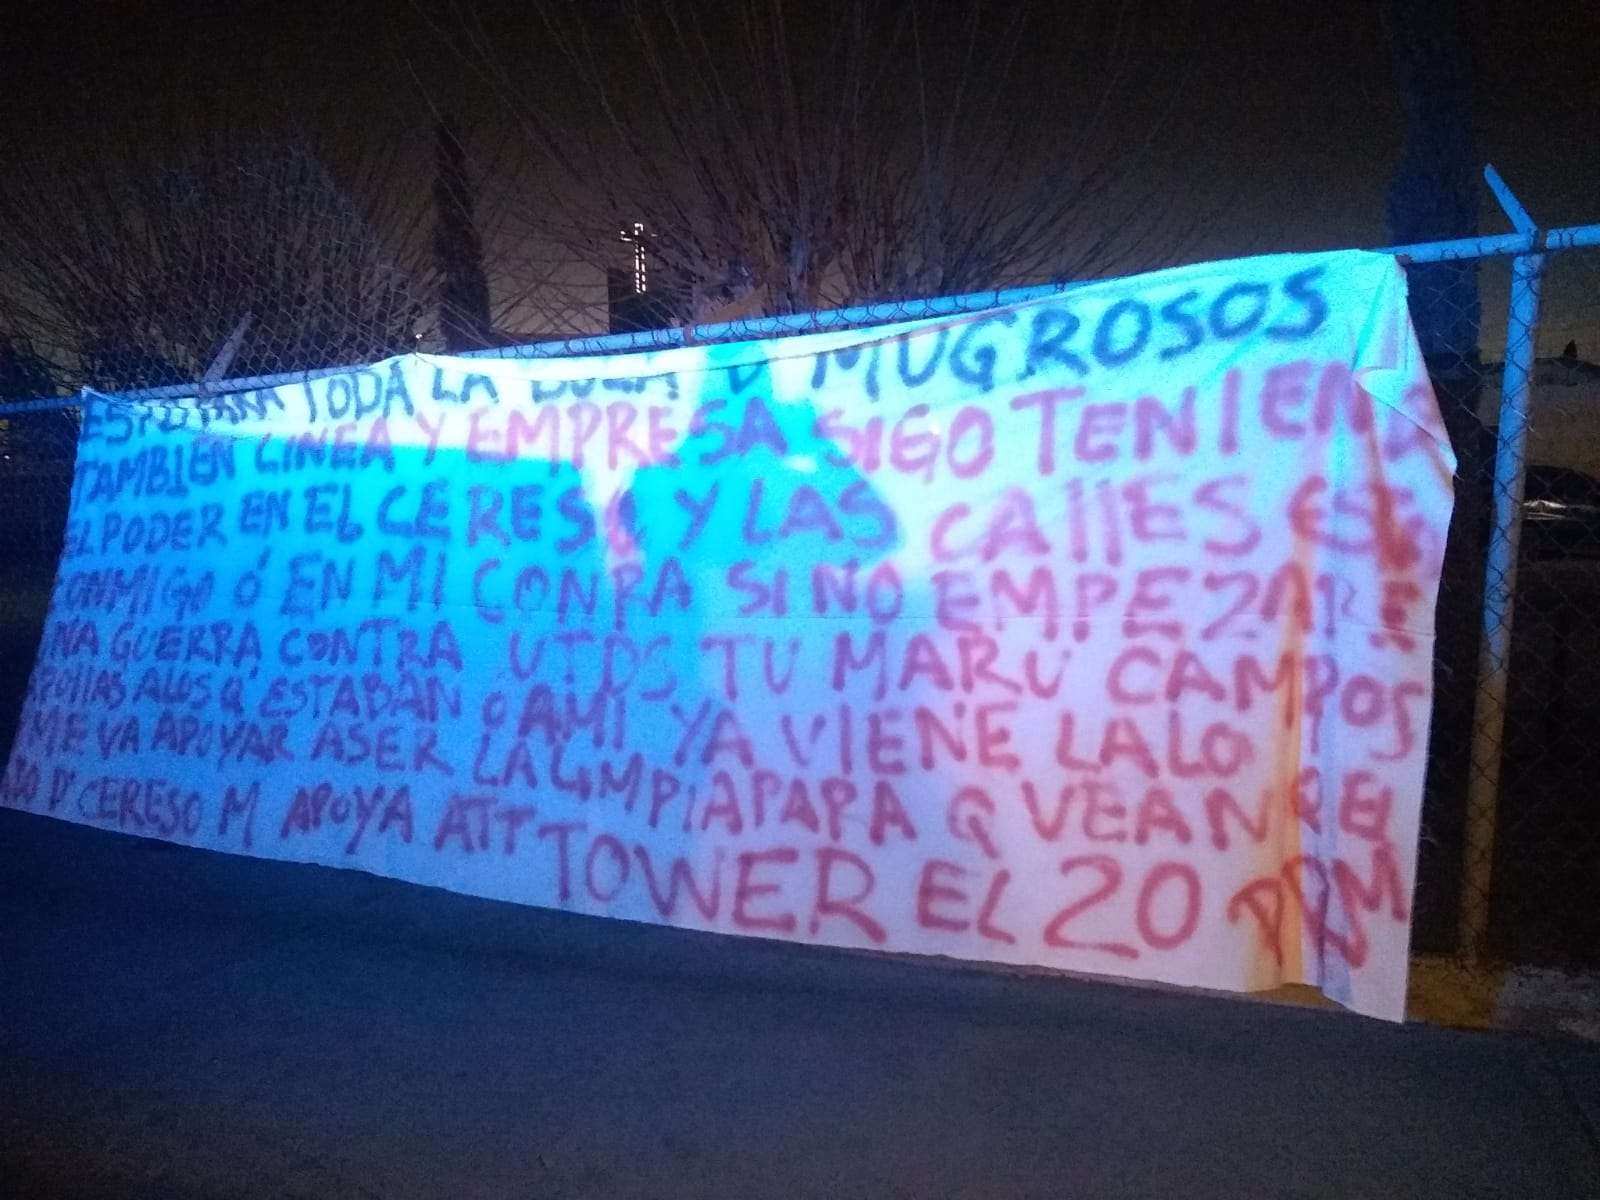 PARA TODA LA BOLA D MUGROSOS
TAMBIEN LINEA Y EMPRESA SIGO TENIEND
EL PODER EN EL CERESO Y LAS CAllES ES
CONMIGO Ó EN MI CONRA SI NO EMPEZARE
UNA GUERRA CONTRA UTDS TU MARU CAMPOS
APOllAS ALLOS Q' ESTABAN O AMI YA VIENE LALO
ME VA APOYAR ASER LA LIMPIAPAPA Q VEAN Q EL
D' CERESO M APOYA ATT TOWER EL 20 PPM